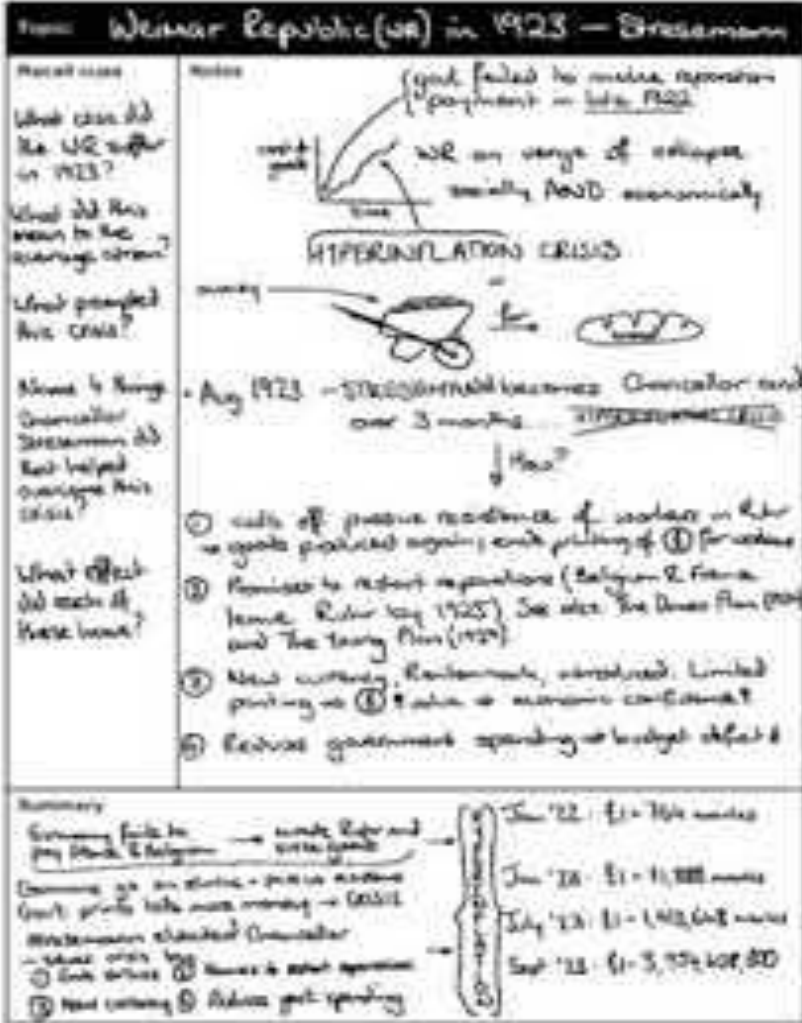 Topic: Weimar Republic (WR) in 1923 — Stresemann
Recall cues
What crisis did
the WR suffer
in 1923?
What did this
mean to the
average citizen?
What prompted
this crisis?
Name 4 things
Chancellor
Stresemann did
that helped
overcome this
crisis?
What effect
did each of
these have?
Notes
govt failed to make reparation
payment in late 1922
cost of
goods
time
WR on verge of collapse
socially AND economically
HYPERINFLATION CRISIS
money
for
• Aug 1923 - STRESEMANN becomes Chancellor and
over 3 months... HYPERINFLATION CRISIS
How?
① calls off passive resistance of workers in Ruhr
→ goods produced again; ends printing of for
② Promises to restart reparations (Belgium & France
leave Ruhr by 1925). See also: The Dawes Plan
and The Young Plan (1929)
③ New currency, Rentenmark, introduced. Limited
printing → value → economic confidence ↑
④ Reduces government spending → budget deficit ↓
Summary
Germany fails to
pay France & Belgium → invade Ruhr and
seize goods
Germans go on strike - passive
Govt prints lots more money → CRISIS
Stresemann elected Chancellor
- solves crisis by
① Ends strikes ② Promises to restart reparations
③ New currency ④ Reduces govt spending
Jan '22: £1 = 764 marks
Jan '23: £1 = marks
July '23: £1 = marks
Sept '23: £1 =